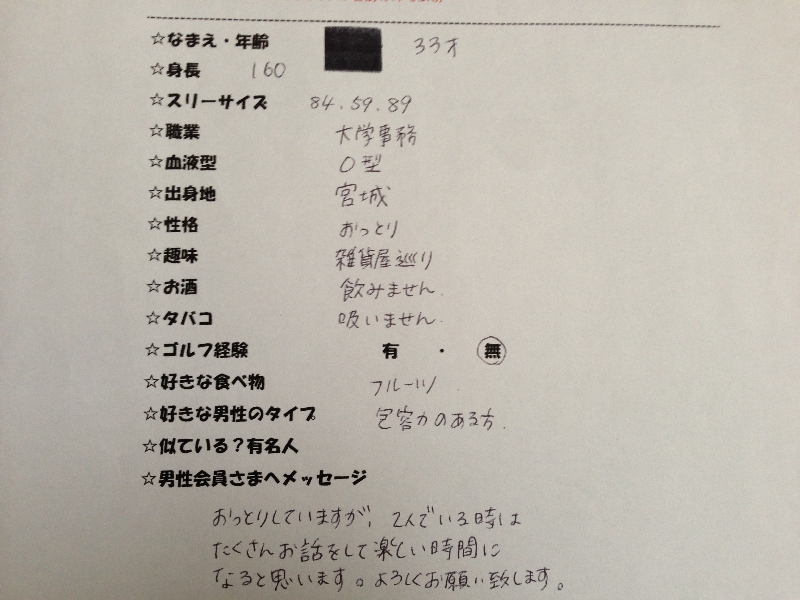 ☆なまえ・年齢 33才
☆身長 160
☆スリーサイズ 84.59.89
☆職業 大学事務
☆血液型 O型
☆出身地 宮城
☆性格 おっとり
☆趣味 雑貨屋巡り
☆お酒 飲みません.
☆タバコ 吸いません.
☆ゴルフ経験 有 ・ 無
☆好きな食べ物 フルーツ
☆好きな男性のタイプ 包容力のある方.
☆似ている?有名人
☆男性会員さまへメッセージ
おっとりしていますが、2人でいる時は
たくさんお話をして楽しい時間に
なると思います。よろしくお願い致します。